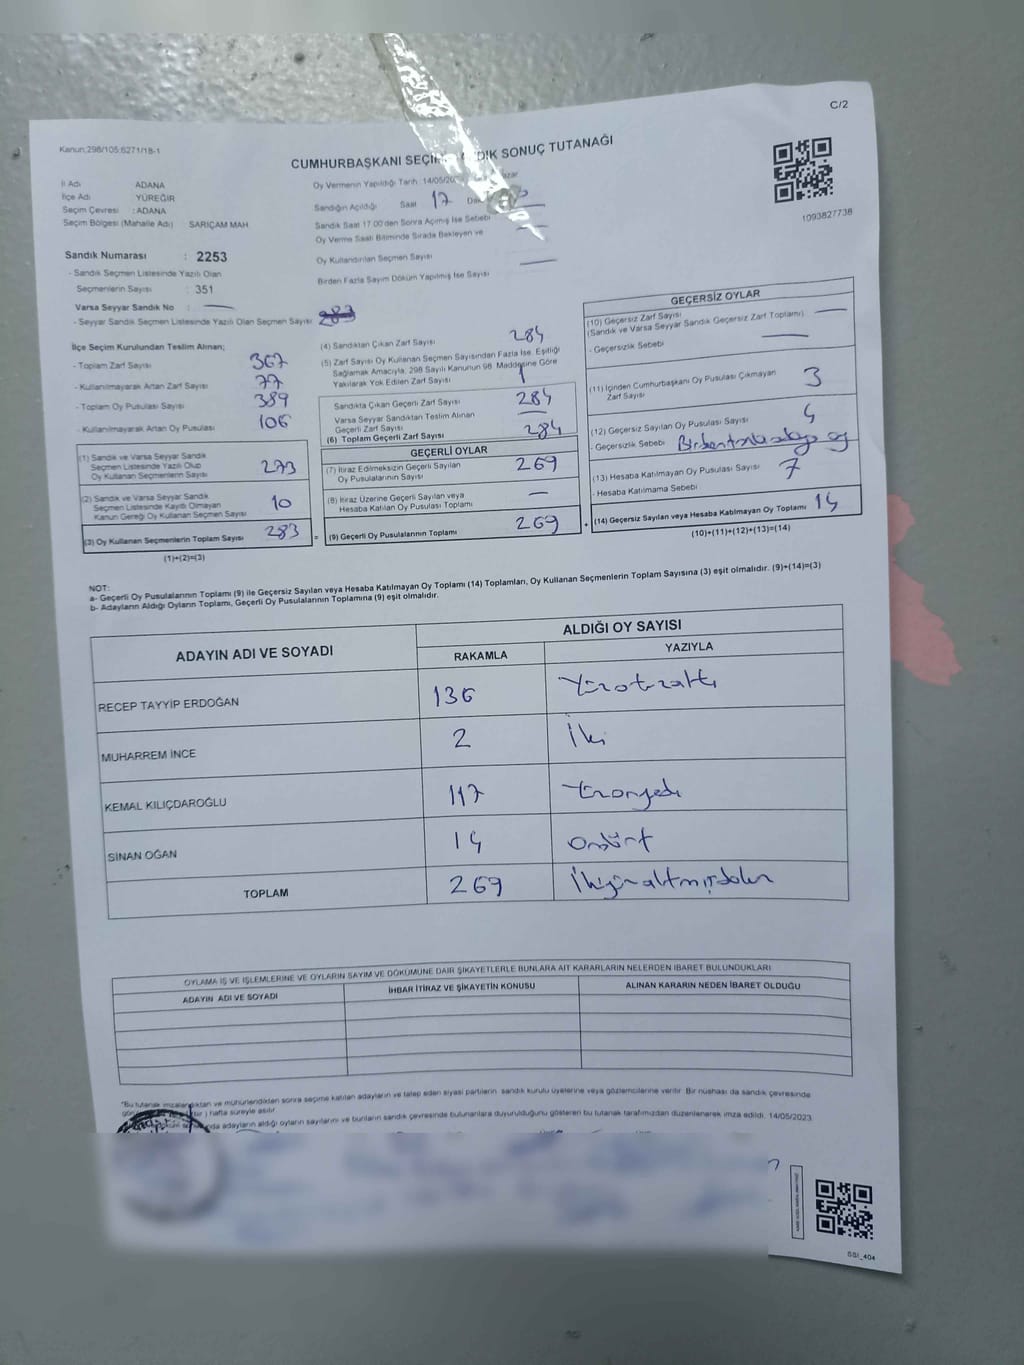 C/2
Kanun:298/105;6271/18-1
CUMHURBAŞKANI SEÇİM SONUÇ TUTANAĞI
İl Adı ADANA
İlçe Adı YÜREĞİR
Seçim Çevresi : ADANA
Seçim Bölgesi (Mahalle Adı) SARIÇAM MAH.
Oy Vermenin Yapıldığı Tarih :14/05/20
Sandığın Açıldığı Saat 17
Sandık Saat 17.00'den Sonra Açılmış İse Sebebi
Oy Verme Saati Bitiminde Sırada Bekleyen ve
Oy Kullandırılan Seçmen Sayısı
Birden Fazla Sayım Döküm Yapılmış İse Sayısı
1093827738
Sandık Numarası : 2253
- Sandık Seçmen Listesinde Yazılı Olan
Seçmenlerin Sayısı : 351
Varsa Seyyar Sandık No : —
- Seyyar Sandık Seçmen Listesinde Yazılı Olan Seçmen Sayısı
İlçe Seçim Kurulundan Teslim Alınan;
- Toplam Zarf Sayısı 367
- Kullanılmayarak Artan Zarf Sayısı 77
- Toplam Oy Pusulası Sayısı 389
- Kullanılmayarak Artan Oy Pusulası 106
(1) Sandık ve Varsa Seyyar Sandık
Seçmen Listesinde Yazılı Olup
Oy Kullanan Seçmenlerin Sayısı 273
(2) Sandık ve Varsa Seyyar Sandık
Seçmen Listesinde Kayıtlı Olmayan
Kanun Gereği Oy Kullanan Seçmen Sayısı 10
(3) Oy Kullanan Seçmenlerin Toplam Sayısı 283
(1)+(2)=(3)
(4) Sandıktan Çıkan Zarf Sayısı 284
(5) Zarf Sayısı Oy Kullanan Seçmen Sayısından Fazla İse, Eşitliği
Sağlamak Amacıyla, 298 Sayılı Kanunun 98. Maddesine Göre
Yakılarak Yok Edilen Zarf Sayısı 1
Sandıkta Çıkan Geçerli Zarf Sayısı 284
Varsa Seyyar Sandıktan Teslim Alınan
Geçerli Zarf Sayısı —
(6) Toplam Geçerli Zarf Sayısı 284
GEÇERLİ OYLAR
(7) İtiraz Edilmeksizin Geçerli Sayılan
Oy Pusulasının Sayısı 269
(8) İtiraz Üzerine Geçerli Sayılan veya
Hesaba Katılan Oy Pusulası Toplamı —
= (9) Geçerli Oy Pusulalarının Toplamı 269
GEÇERSİZ OYLAR
(10) Geçersiz Zarf Sayısı —
(Sandık ve Varsa Seyyar Sandık Geçersiz Zarf Toplamı)
- Geçersizlik Sebebi —
(11) İçinden Cumhurbaşkanı Oy Pusulası Çıkmayan
Zarf Sayısı 3
(12) Geçersiz Sayılan Oy Pusulası Sayısı 4
- Geçersizlik Sebebi
(13) Hesaba Katılmayan Oy Pusulası Sayısı 7
- Hesaba Katılmama Sebebi
+ (14) Geçersiz Sayılan veya Hesaba Katılmayan Oy Toplamı 14
(10)+(11)+(12)+(13)=(14)
NOT:
a- Geçerli Oy Pusulalarının Toplamı (9) ile Geçersiz Sayılan veya Hesaba Katılmayan Oy Toplamı (14) Toplamları, Oy Kullanan Seçmenlerin Toplam Sayısına (3) eşit olmalıdır. (9)+(14)=(3)
b- Adayların Aldığı Oyların Toplamı, Geçerli Oy Pusulalarının Toplamına (9) eşit olmalıdır.
ADAYIN ADI VE SOYADI
ALDIĞI OY SAYISI
RAKAMLA YAZIYLA
RECEP TAYYİP ERDOĞAN 136 Yüzotuzaltı
MUHARREM İNCE 2 İki
KEMAL KILIÇDAROĞLU 117 Yüzonyedi
SİNAN OĞAN 14 Ondört
TOPLAM 269 İkiyüzaltmışdokuz
OYLAMA İŞ VE İŞLEMLERİNE VE OYLARIN SAYIM VE DÖKÜMÜNE DAİR ŞİKAYETLERLE BUNLARA AİT KARARLARIN NELERDEN İBARET BULUNDUKLARI
ADAYIN ADI VE SOYADI İHBAR İTİRAZ VE ŞİKAYETİN KONUSU ALINAN KARARIN NEDEN İBARET OLDUĞU
*Bu tutanak imzalandıktan ve mühürlendikten sonra seçime katılan adayların ve talep eden siyasi partilerin sandık kurulu üyelerine veya gözlemcilerine verilir. Bir nüshası da sandık çevresinde
bir ) hafta süreyle asılır.
adayların aldığı oyların sayılarını ve bunların sandık çevresinde bulunanlara duyurulduğunu gösteren bu tutanak tarafımızdan düzenlenerek imza edildi. 14/05/2023
SSI_404